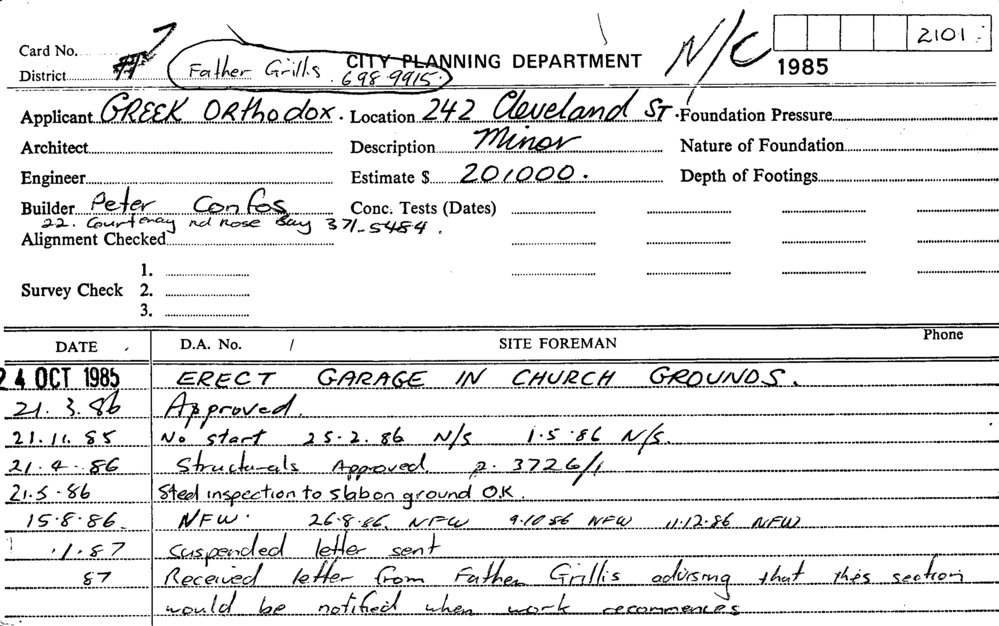 Card No.
District
Father Grills.
698.9915.
CITY PLANNING DEPARTMENT
N/C
2101
1985
Applicant GREEK ORthodox. Location 242 Cleveland ST. Foundation Pressure
Architect Description Minor Nature of Foundation
Engineer Estimate $ 20,000. Depth of Footings
Builder Peter Confos Conc. Tests (Dates)
22. Courtenay rd Rose Bay 371-5484.
Alignment Checked
1.
Survey Check 2.
3.
DATE D.A. No. / SITE FOREMAN Phone
24 OCT 1985 ERECT GARAGE IN CHURCH GROUNDS.
21.3.86 Approved.
21.11.85 No start 25.2.86 N/S 1.5.86 N/S.
21.4.86 Structurals Approved p. 3726/1
21.5.86 Steel inspection to slab on ground O.K.
15.8.86 NFW. 26.8.86. NFW 9.10.86 NFW 11.12.86 NFW
.1.87 Suspended letter sent
87 Received letter from Father Grillis advising that this section
would be notified when work recommences